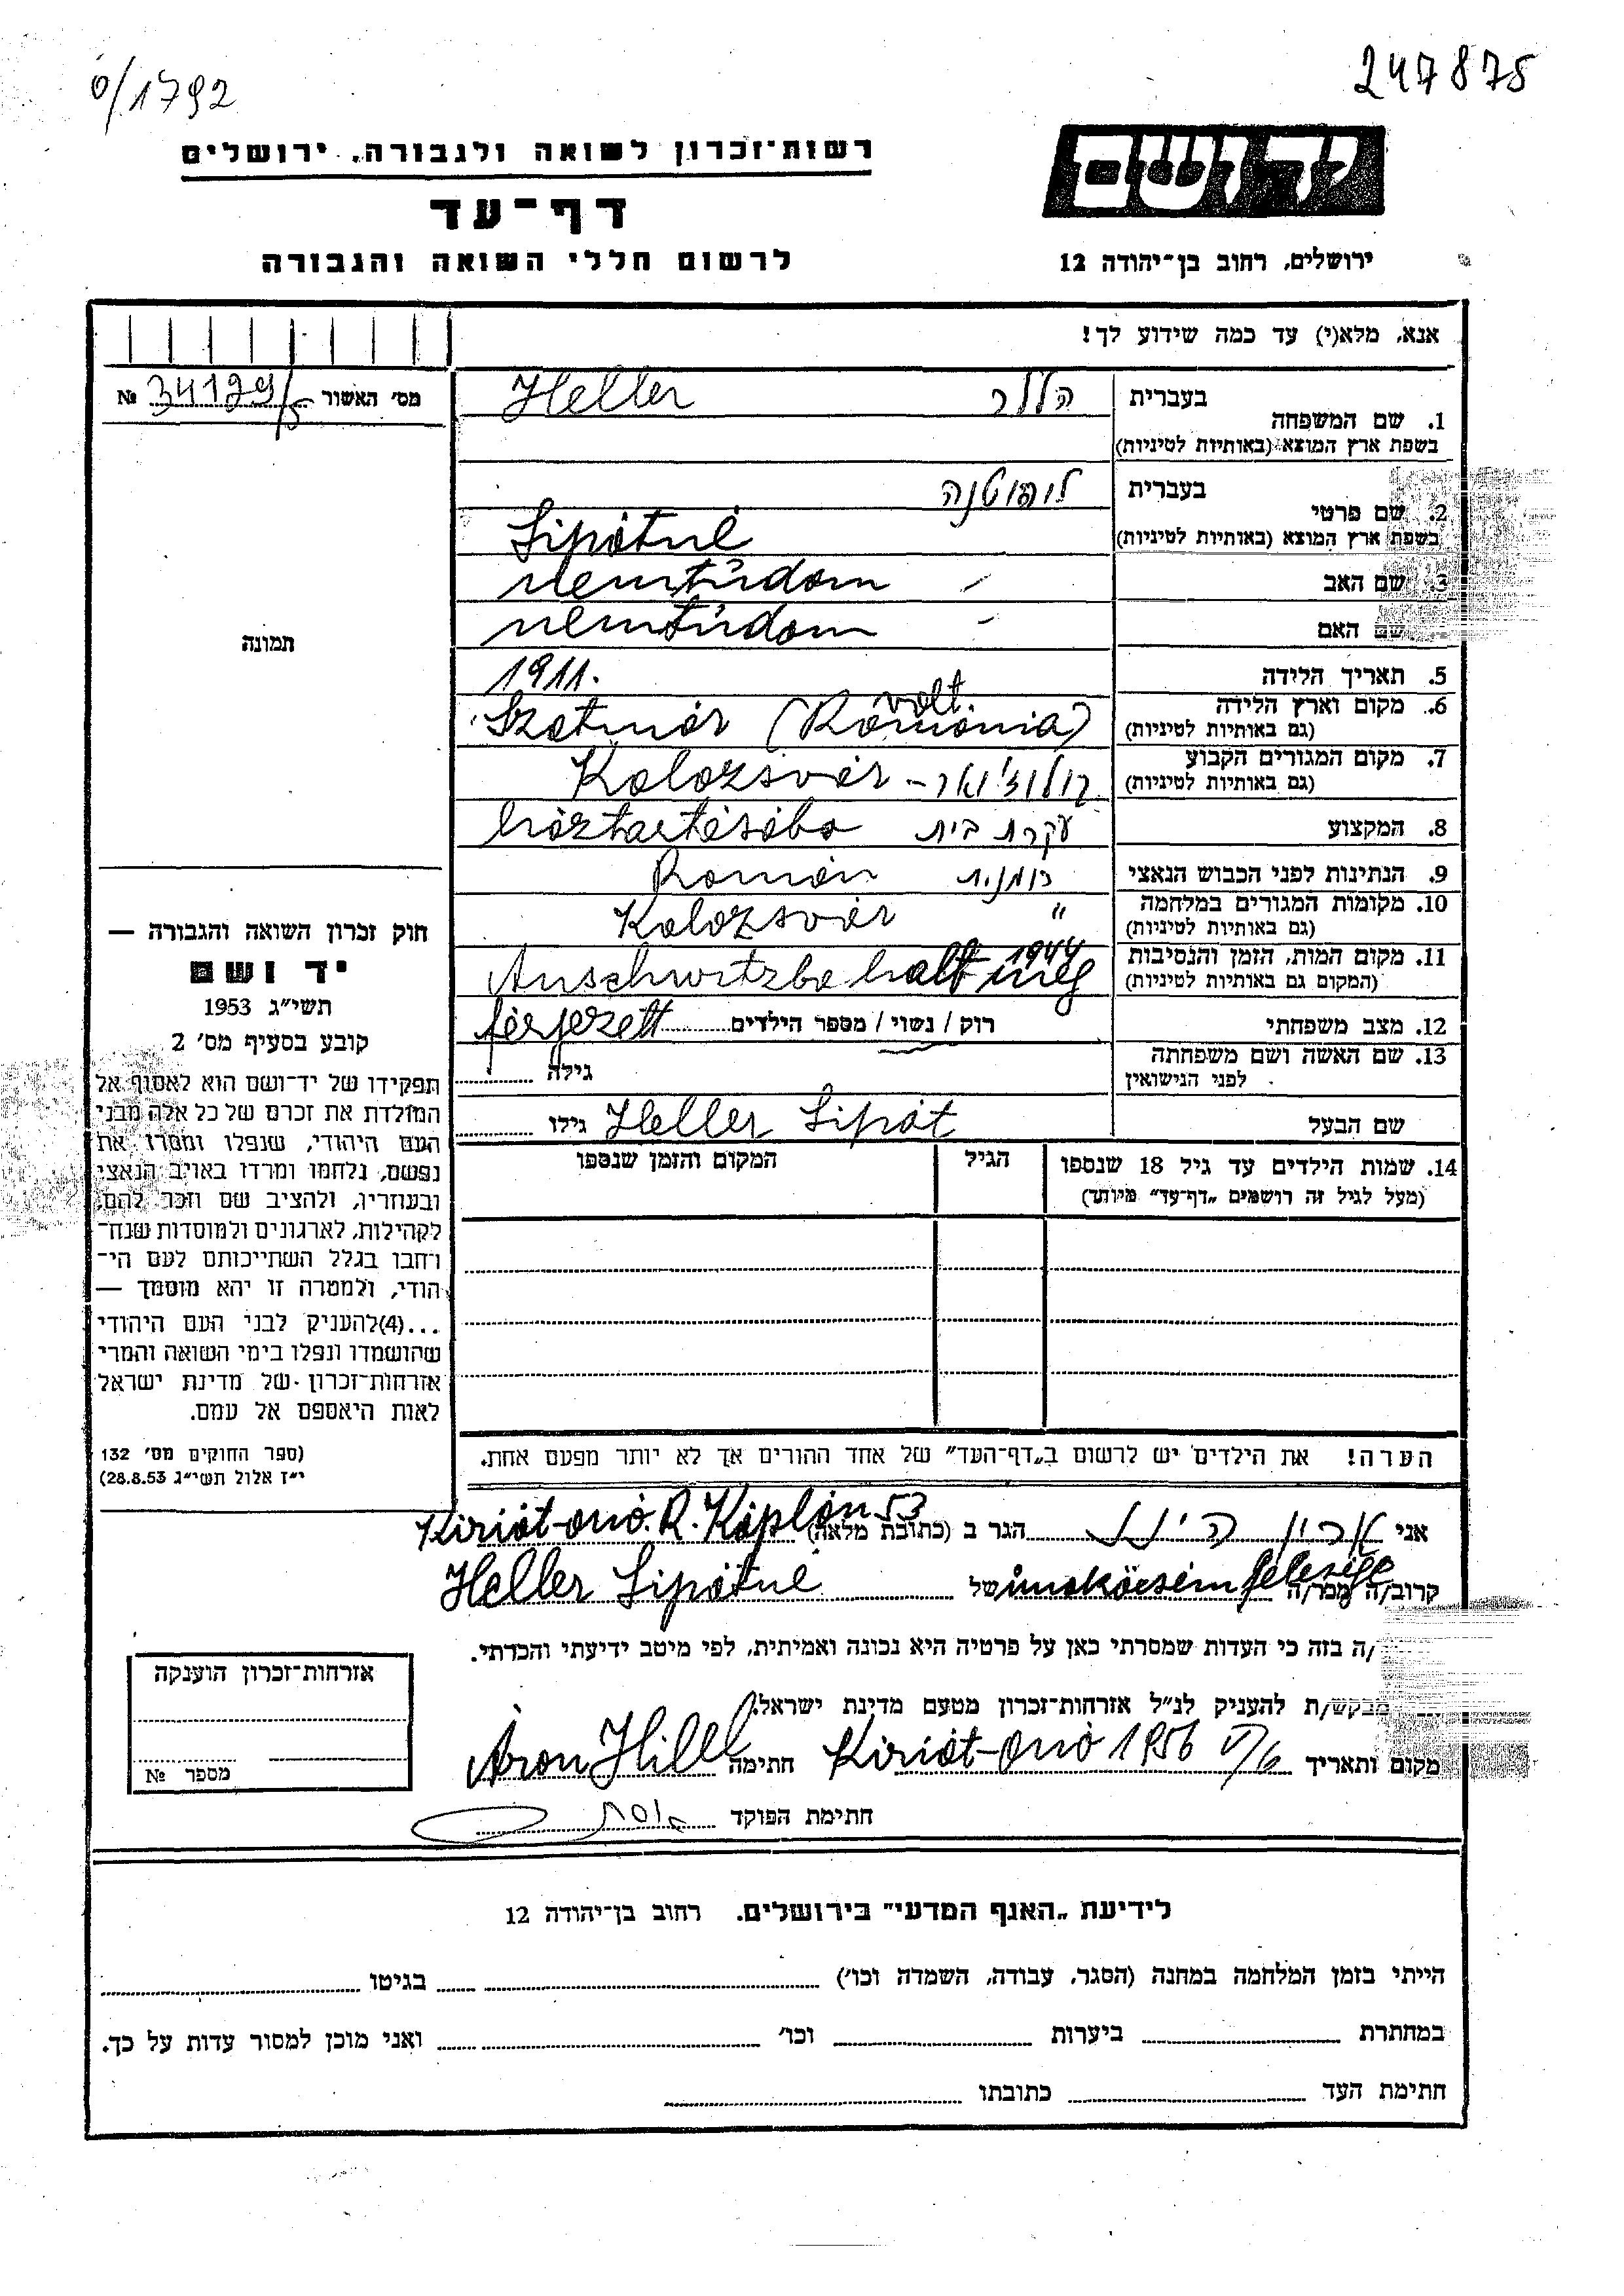 0/1792
247875
רשות־זכרון לשואה ולגבורה, ירושלים
דף־עד
לרשום חללי השואה והגבורה
ידושם
ירושלים, רחוב בן־יהודה 12
אנא, מלא(י) עד כמה שידוע לך!
מס' האשור 34129/5 №
תמונה
1. שם המשפחה
בעברית הללר Heller
בשפת ארץ המוצא (באותיות לטיניות)
2. שם פרטי
בעברית
בשפת ארץ המוצא (באותיות לטיניות) Lipótné
3. שם האב - Nemtúdom
שם האם - nemtúdom
5. תאריך הלידה 1911.
6. מקום וארץ הלידה
(גם באותיות לטיניות) Szatmár (Románia) volt.
7. מקום המגורים הקבוע
(גם באותיות לטיניות) Kolozsvár – קולוז'ואר
8. המקצוע עקרת בית háztartásába
9. הנתינות לפני הכבוש הנאצי רומנית Román
10. מקומות המגורים במלחמה
(גם באותיות לטיניות) " Kolozsvár
11. מקום המות, הזמן והנסיבות
(המקום גם באותיות לטיניות) Auschwitzba halt meg 1944
12. מצב משפחתי רוק / נשוי / מספר הילדים férjezett
13. שם האשה ושם משפחתה
לפני הנישואין גילה
שם הבעל Heller Lipót גילו
14. שמות הילדים עד גיל 18 שנספו
(מעל לגיל זה רושמים „דף־עד" מיוחד)
הגיל
המקום והזמן שנספו
הערה! את הילדים יש לרשום ב„דף־העד" של אחד ההורים אך לא יותר מפעם אחת.
חוק זכרון השואה והגבורה —
יד ושם
תשי"ג 1953
קובע בסעיף מס' 2
תפקידו של יד־ושם הוא לאסוף אל
המולדת את זכרם של כל אלה מבני
העם היהודי, שנפלו ומסרו את
נפשם, נלחמו ומרדו באויב הנאצי
ובעוזריו, ולהציב שם וזכר להם,
לקהילות, לארגונים ולמוסדות שנח־
רחבו בגלל השתייכותם לעם הי־
הודי, ולמטרה זו יהא מוסמך —
...(4)להעניק לבני העם היהודי
שהושמדו ונפלו בימי השואה והמרי
אזרחות־זכרון של מדינת ישראל
לאות היאספם אל עמם.
(ספר החוקים מס' 132
י"ז אלול תשי"ג 28.8.53)
אני הגר ב (כתובת מלאה) Kiriát-onó. R. Káplán 53
קרוב/ה מכר/ה unoköcsém felesége של Heller Lipótné
/ה בזה כי העדות שמסרתי כאן על פרטיה היא נכונה ואמיתית, לפי מיטב ידיעתי והכרתי.
מבקש/ת להעניק לנ"ל אזרחות־זכרון מטעם מדינת ישראל.
מקום ותאריך Kiriát-onó 1956 V/6 חתימה Áron Hilel
חתימת הפוקד
אזרחות־זכרון הוענקה
מספר №
לידיעת „האגף המדעי" בירושלים. רחוב בן־יהודה 12
הייתי בזמן המלחמה במחנה (הסגר, עבודה, השמדה וכו') בגיטו
במחתרת ביערות וכו' ואני מוכן למסור עדות על כך.
חתימת העד כתובתו